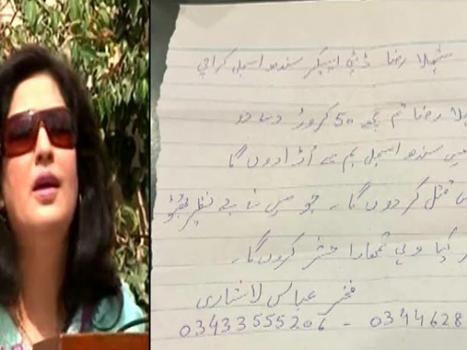 شہلا رضا ڈپٹی اسپیکر سندھ اسمبلی کراچی
رضا تم مجھے 50 کروڑ دے دو
میں سندھ اسمبلی بم سے اُڑا دوں گا
قتل کر دوں گا۔ جو میں نے بے نظیر بھٹو
کیا وہی تمھارا حشر کروں گا۔
فخر عباس لاشاری
03433555206 - 0344628